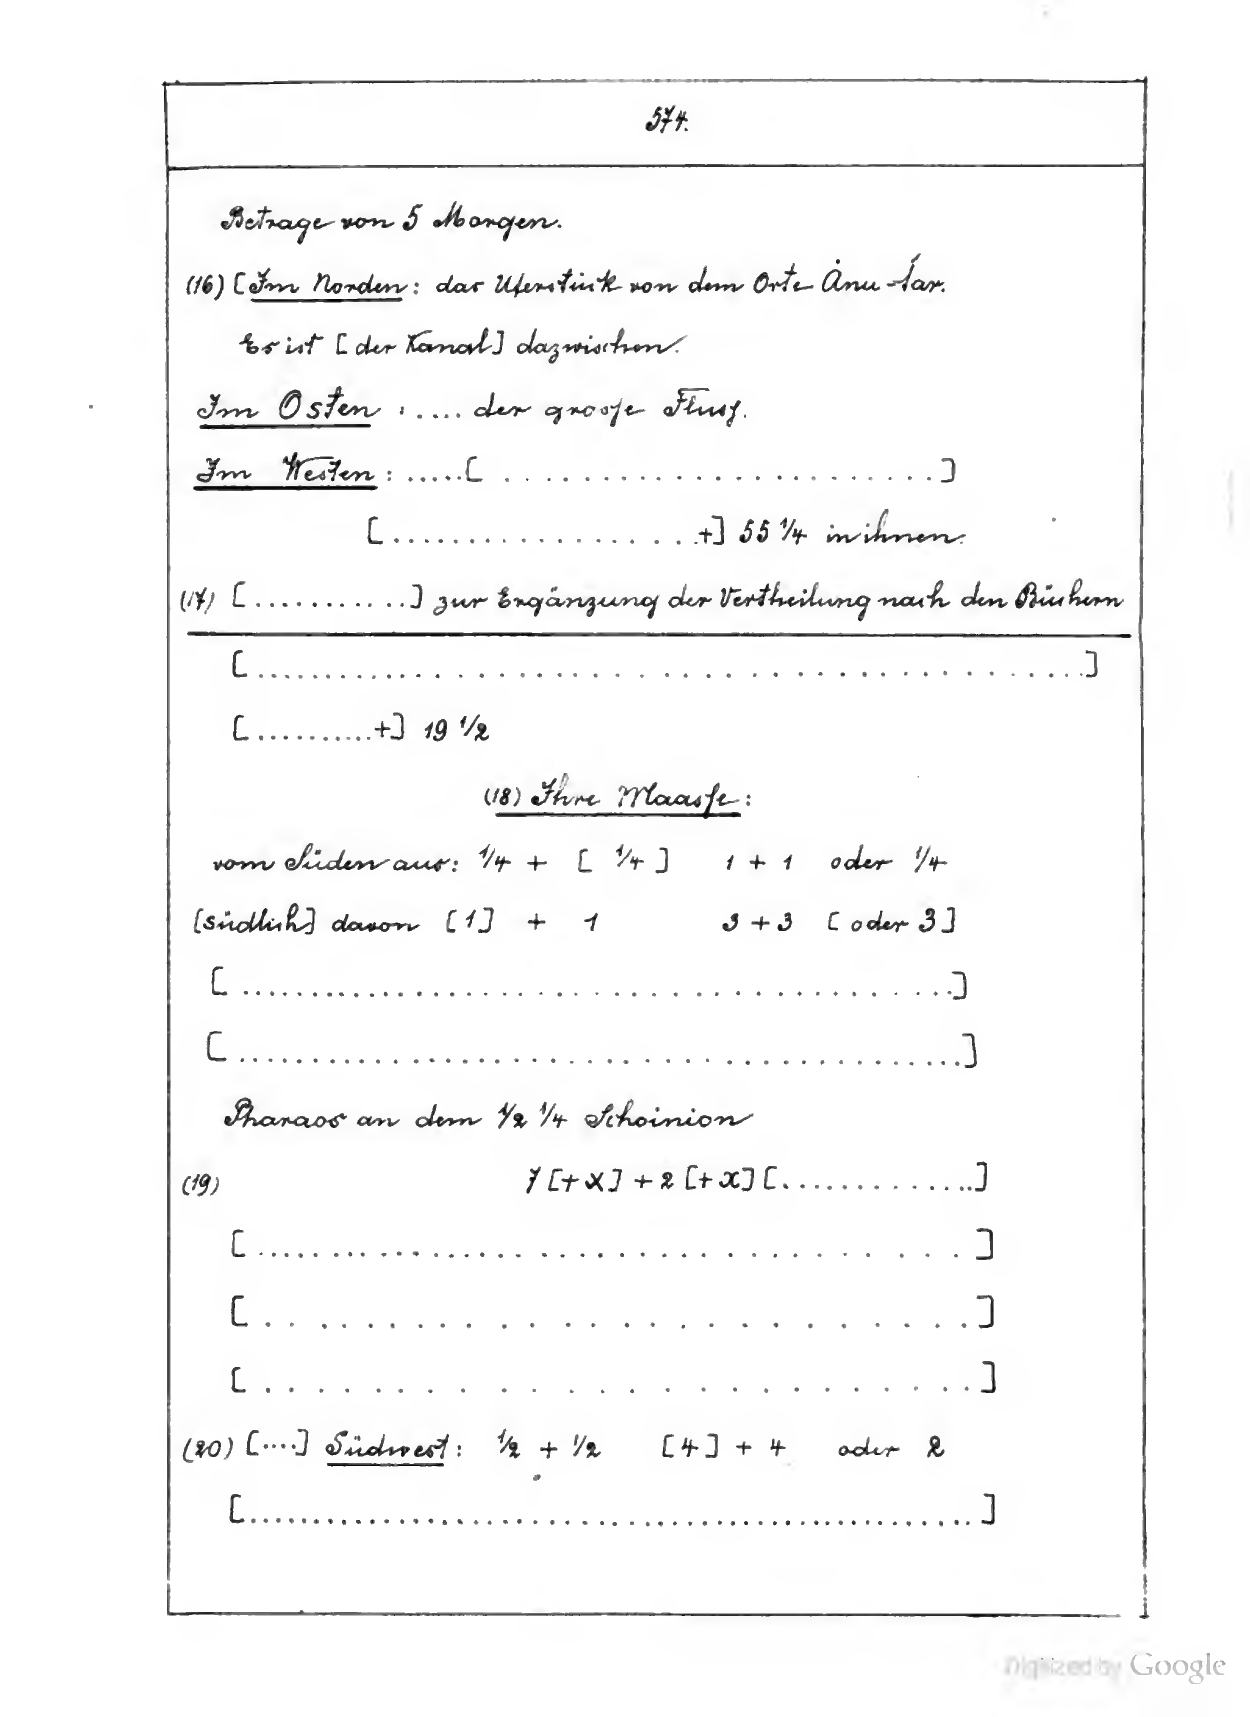 574.
Betrage von 5 Morgen.
(16) [Im Norden: das Uferstück von dem Orte Ȧnu-šar.
Es ist [der Kanal] dazwischen.
Im Osten : .... der grosse Fluss.
Im Westen : .....[ ....................... ]
[..................+] 55 1/4 in ihnen.
(17) [............] zur Ergänzung der Vertheilung nach den Büchern
[............................................]
[..........+] 19 1/2
(18) Ihre Maasse:
vom Süden aus: 1/4 + [ 1/4 ] 1 + 1 oder 1/4
[südlich] davon [1] + 1 3 + 3 [oder 3]
[ ........................................]
[ ........................................]
Pharaos an dem 1/2 1/4 Schoinion
(19) 7 [+ X] + 2 [+ X] [.............]
[ .................................... ]
[ ....................... ]
[ ....................... ]
(20) [....] Südwest: 1/2 + 1/2 [4] + 4 oder 2
[................................................ ]
Digitized by Google